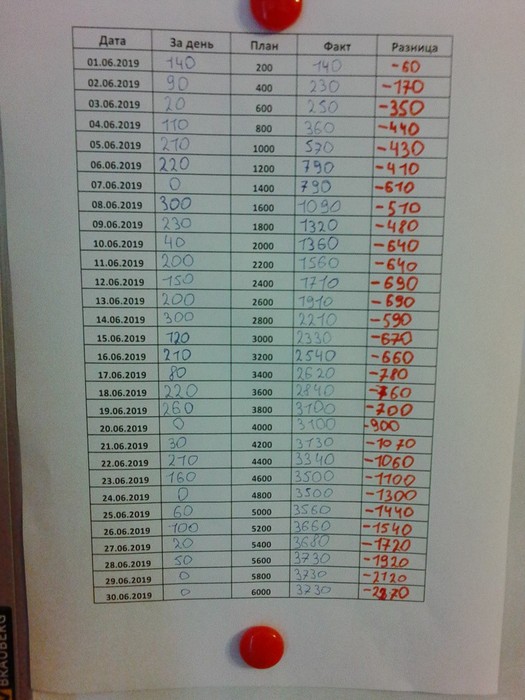 Дата За день План Факт Разница
01.06.2019 140 200 140 -60
02.06.2019 90 400 230 -170
03.06.2019 20 600 250 -350
04.06.2019 110 800 360 -440
05.06.2019 210 1000 570 -430
06.06.2019 220 1200 790 -410
07.06.2019 0 1400 790 -610
08.06.2019 300 1600 1090 -510
09.06.2019 230 1800 1320 -480
10.06.2019 40 2000 1360 -640
11.06.2019 200 2200 1560 -640
12.06.2019 150 2400 1710 -690
13.06.2019 200 2600 1910 -690
14.06.2019 300 2800 2210 -590
15.06.2019 120 3000 2330 -670
16.06.2019 210 3200 2540 -660
17.06.2019 80 3400 2620 -780
18.06.2019 220 3600 2840 -760
19.06.2019 260 3800 3100 -700
20.06.2019 0 4000 3100 -900
21.06.2019 30 4200 3130 -1070
22.06.2019 210 4400 3340 -1060
23.06.2019 160 4600 3500 -1100
24.06.2019 0 4800 3500 -1300
25.06.2019 60 5000 3560 -1440
26.06.2019 100 5200 3660 -1540
27.06.2019 20 5400 3680 -1720
28.06.2019 50 5600 3730 -1920
29.06.2019 0 5800 3730 -2120
30.06.2019 0 6000 3730 -2270
BRAUBERG